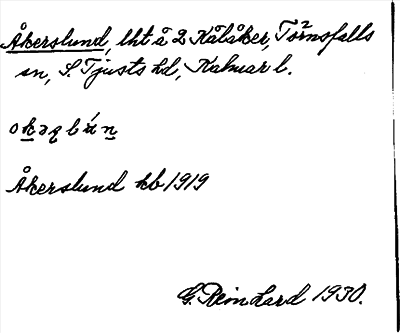 Åkerslund, lht å 2 Kålåker, Törnsfalls
sn, S. Tjusts hd, Kalmar l.
Åkerslund kb 1919
G. Reinhard 1930.